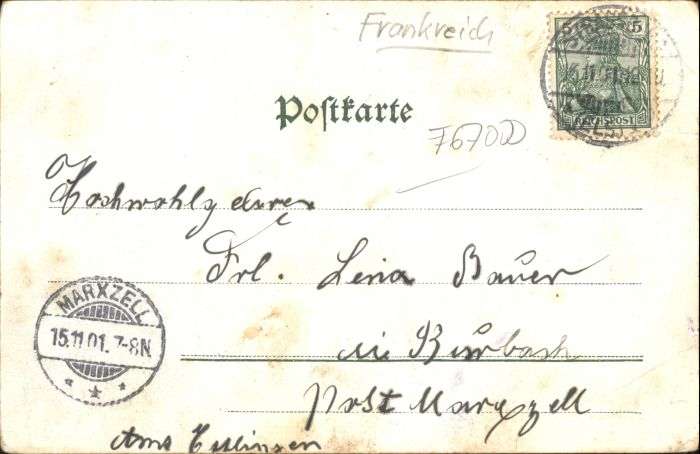 Frankreich
5 5
REICHSPOST
Postkarte
7670D
Hochwohlgeboren
Frl. Lena Bauer
in Burbach
Post Marxzell
Amt Ettlingen
MARXZELL
15.11.01. 7-8N.